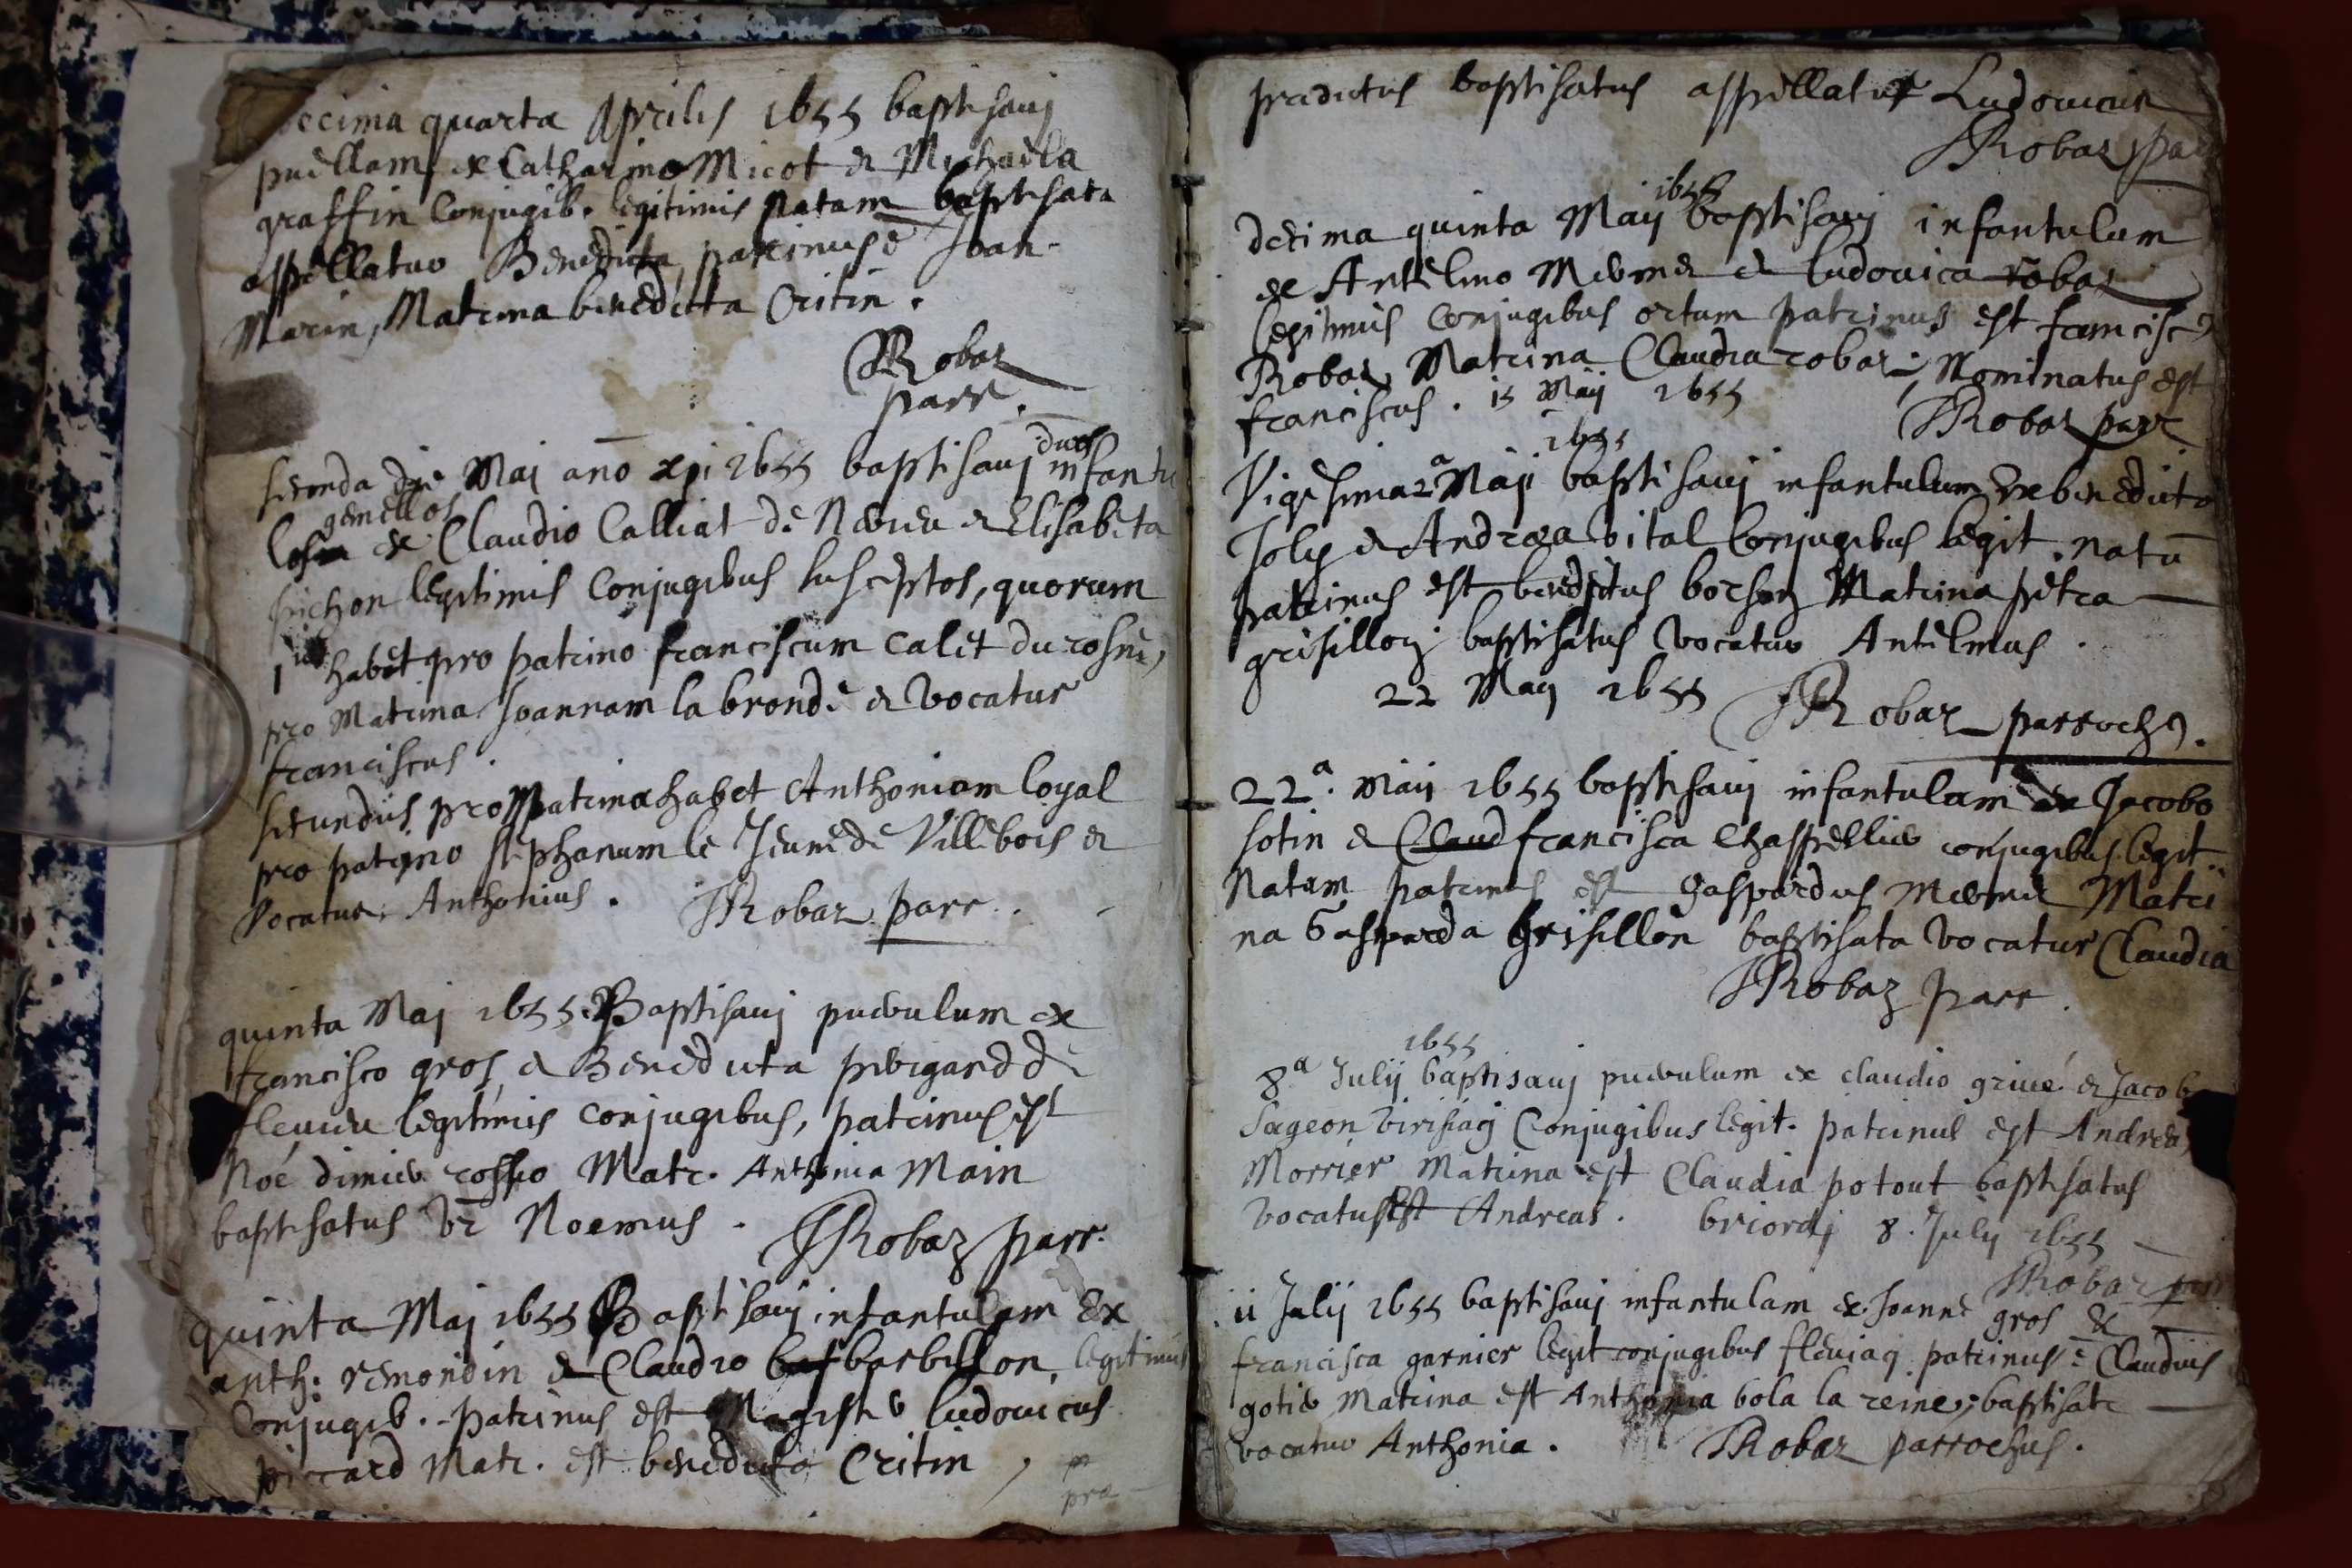 decima quarta Aprilis 1655 baptisavj
puellam ex Catharino Micot & Michaela
graffin Conjugib. legitimis natam baptisata
appellatur Benedicta patrinus ē Joan-
Marin, Matrina benedicta Critin.
Robaz
parr.
secunda die Maj año xpi 1655 baptisavj duos infantu
gemellos
los ex Claudio Calliat de & Elisabeta
pichon legitimis Conjugibus susceptos, quorum
1us habet pro patrino franciscum calet du rosne,
pro Matrina Joannam la bronde & vocatur
franciscus.
secundus pro Matrina habet Anthoniam loyal
pro patrino stephanum le Jeune de Villebois &
Vocatur Anthonius. JRobaz parr.
quinta Maj 1655 Baptisavj puerulum ex
francisco gros & Benedicta pergard de
flevieu legitimis conjugibus, patrinus est
Noé dimier Matr. Anthonia Main
baptisatus vr̄ Noemus. JRobaz parr.
quinta Maj 1655 Baptisavj infantulam Ex
anth: remondin & Claudio baf barbillon, legitimis
Conjugib. patrinus est Magister ludovicus
piccard Matr. est benedicta Critin,
præ
prædictus baptisatus appellatur Ludovicus
JRobaz parr
1655
decima quinta Maij baptisavj infantulum
ex Antelmo & ludovica robaz
legitimis conjugibus ortum patrinus est francisc9
Robaz, Matrina Claudia robaz; Nominatus est
franciscus. 15 Maij 1655 JRobaz parr
1655
Vigesima 2a Maji baptisavj infantulum Ex benedicto
Joly & Andræa vital Conjugibus legit. natū
patrinus est benedictus borson Matrina petra
grisillon; baptisatus vocatur Antelmus.
22 Maij 1655 JRobaz parroch9.
22a. Maij 1655 baptisavj infantulam ex Jacobo
sotin & Claud francisca Chappellier conjugibus legit.
Natam patrinus est gaspardus Matri
na Gasparda grisillon baptisata vocatur Claudia
JRobaz parr.
1655
8a Julij baptisavj puerulum ex claudio grivé & Jacob
Sageon Conjugibus legit. patrinus est Andreas
Morrier Matrina est Claudia potout baptisatus
vocatus est Andreas. briordj 8. Julij 1655
JRobaz parr
11 Julij 1655 baptisavj infantulam ex Joanne gros &
francisca garnier legit conjugibus fleviaci patrinus ē Claudius
gotier Matrina est Anthonia bola la reine; baptisata
vocatur Anthonia. JRobaz parrochus.